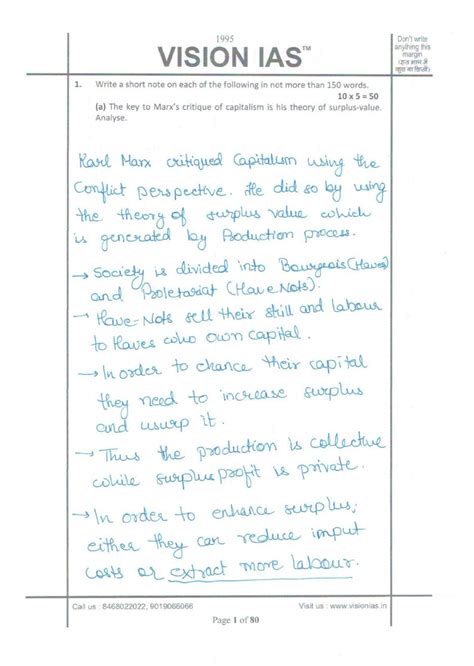 1995
VISION IAS™
Don't write
anything this
margin
1. Write a short note on each of the following in not more than 150 words.
10 x 5 = 50
(a) The key to Marx's critique of capitalism is his theory of surplus-value.
Analyse.
Karl Marx critiqued Capitalism using the
Conflict perspective. He did so by using
the theory of surplus value which
is generated by Production process.
→ Society is divided into Bourgeois (Haves)
and Proletariat (Have Nots).
→ Have-Nots sell their skill and labour
to Haves who own capital.
→ In order to chance their capital
they need to increase surplus
and usurp it.
→ Thus the production is collective
while surplus profit is private.
→ In order to enhance surplus;
either they can reduce imput
costs or extract more labour.
Call us : 8468022022, 9019066066
Visit us : www.visionias.in
Page 1 of 80